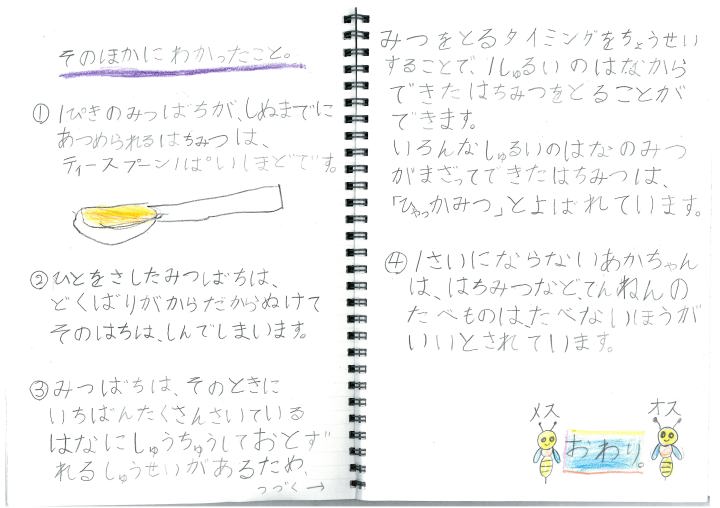 そのほかにわかったこと。
① 1ぴきのみつばちが、しぬまでに
あつめられるはちみつは、
ティースプーン1ぱいしほどです。
② ひとをさしたみつばちは、
どくばりがからだからぬけて
そのはちは、しんでしまいます。
③ みつばちは、そのときに
いちばんたくさんさいている
はなにしゅうちゅうしておとず
れるしゅうせいがあるため、
つづく→
みつをとるタイミングをちょうせい
することで、1しゅるいのはなから
できたはちみつをとることが
できます。
いろんなしゅるいのはなのみつ
がまざってできたはちみつは、
「ひゃっかみつ」とよばれています。
④ 1さいにならないあかちゃん
は、はちみつなど、てんねんの
たべものは、たべないほうが
いいとされています。
メス
オス
おわり。